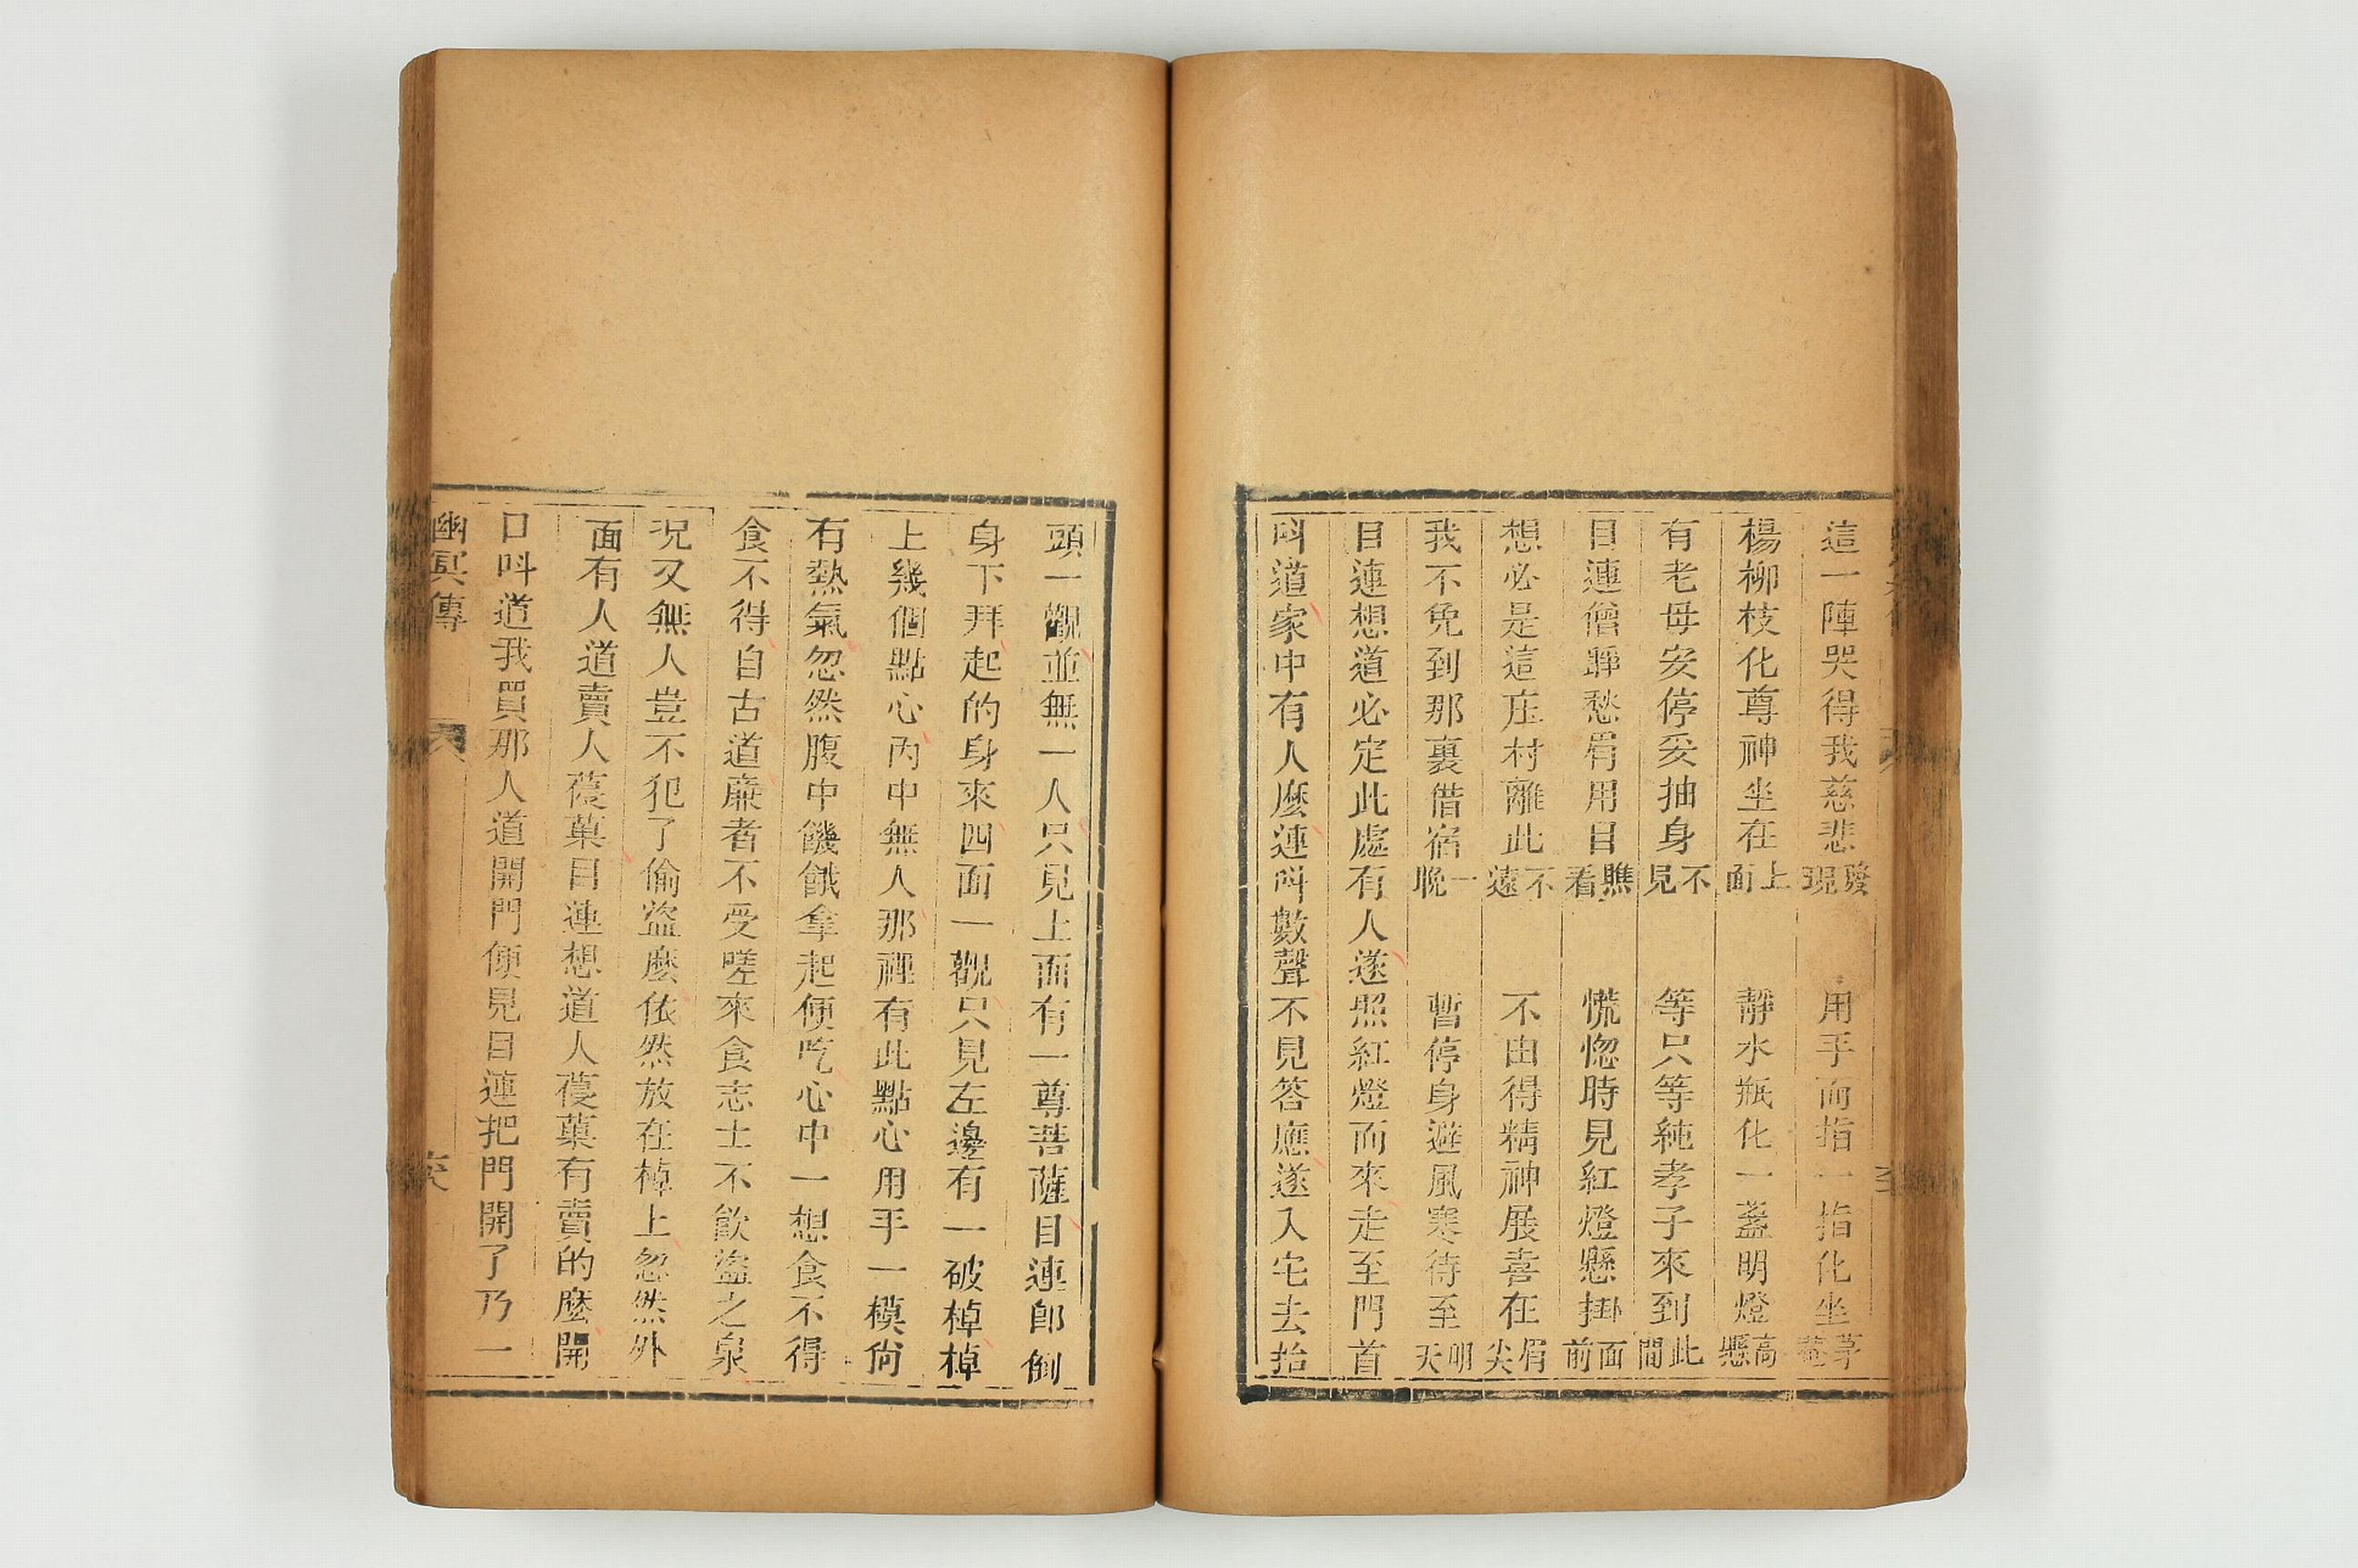 這一陣哭得我慈悲發現　用手而指一指化坐茅菴
楊柳枝化尊神坐在上面　靜水瓶化一盞明燈高懸
有老母安停妥抽身不見　等只等純孝子來到此間
目連僧睜愁眉用目瞧看　慌惚時見紅燈懸掛面前
想必是這庄村離此不遠　不由得精神展喜在眉尖
我不免到那裏借宿一晚　暫停身避風寒待至明天
目連想道必定此處有人遂照紅燈而來走至門首
呌道家中有人麼連呌數聲不見答應遂入宅去抬
頭一觀並無一人只見上面有一尊菩薩目連即倒
身下拜起的身來四面一觀只見左邊有一破棹棹
上幾個點心內中無人那裡有此點心用手一模尚
有熱氣忽然腹中饑餓拿起便吃心中一想食不得
食不得自古道廉者不受嗟來食志士不飲盜之泉
况又無人豈不犯了偷盜麼依然放在棹上忽然外
面有人道賣人葠菓目連想道人葠菓有賣的麼開
口呌道我買那人道開門便見目連把門開了乃一
幽冥傳